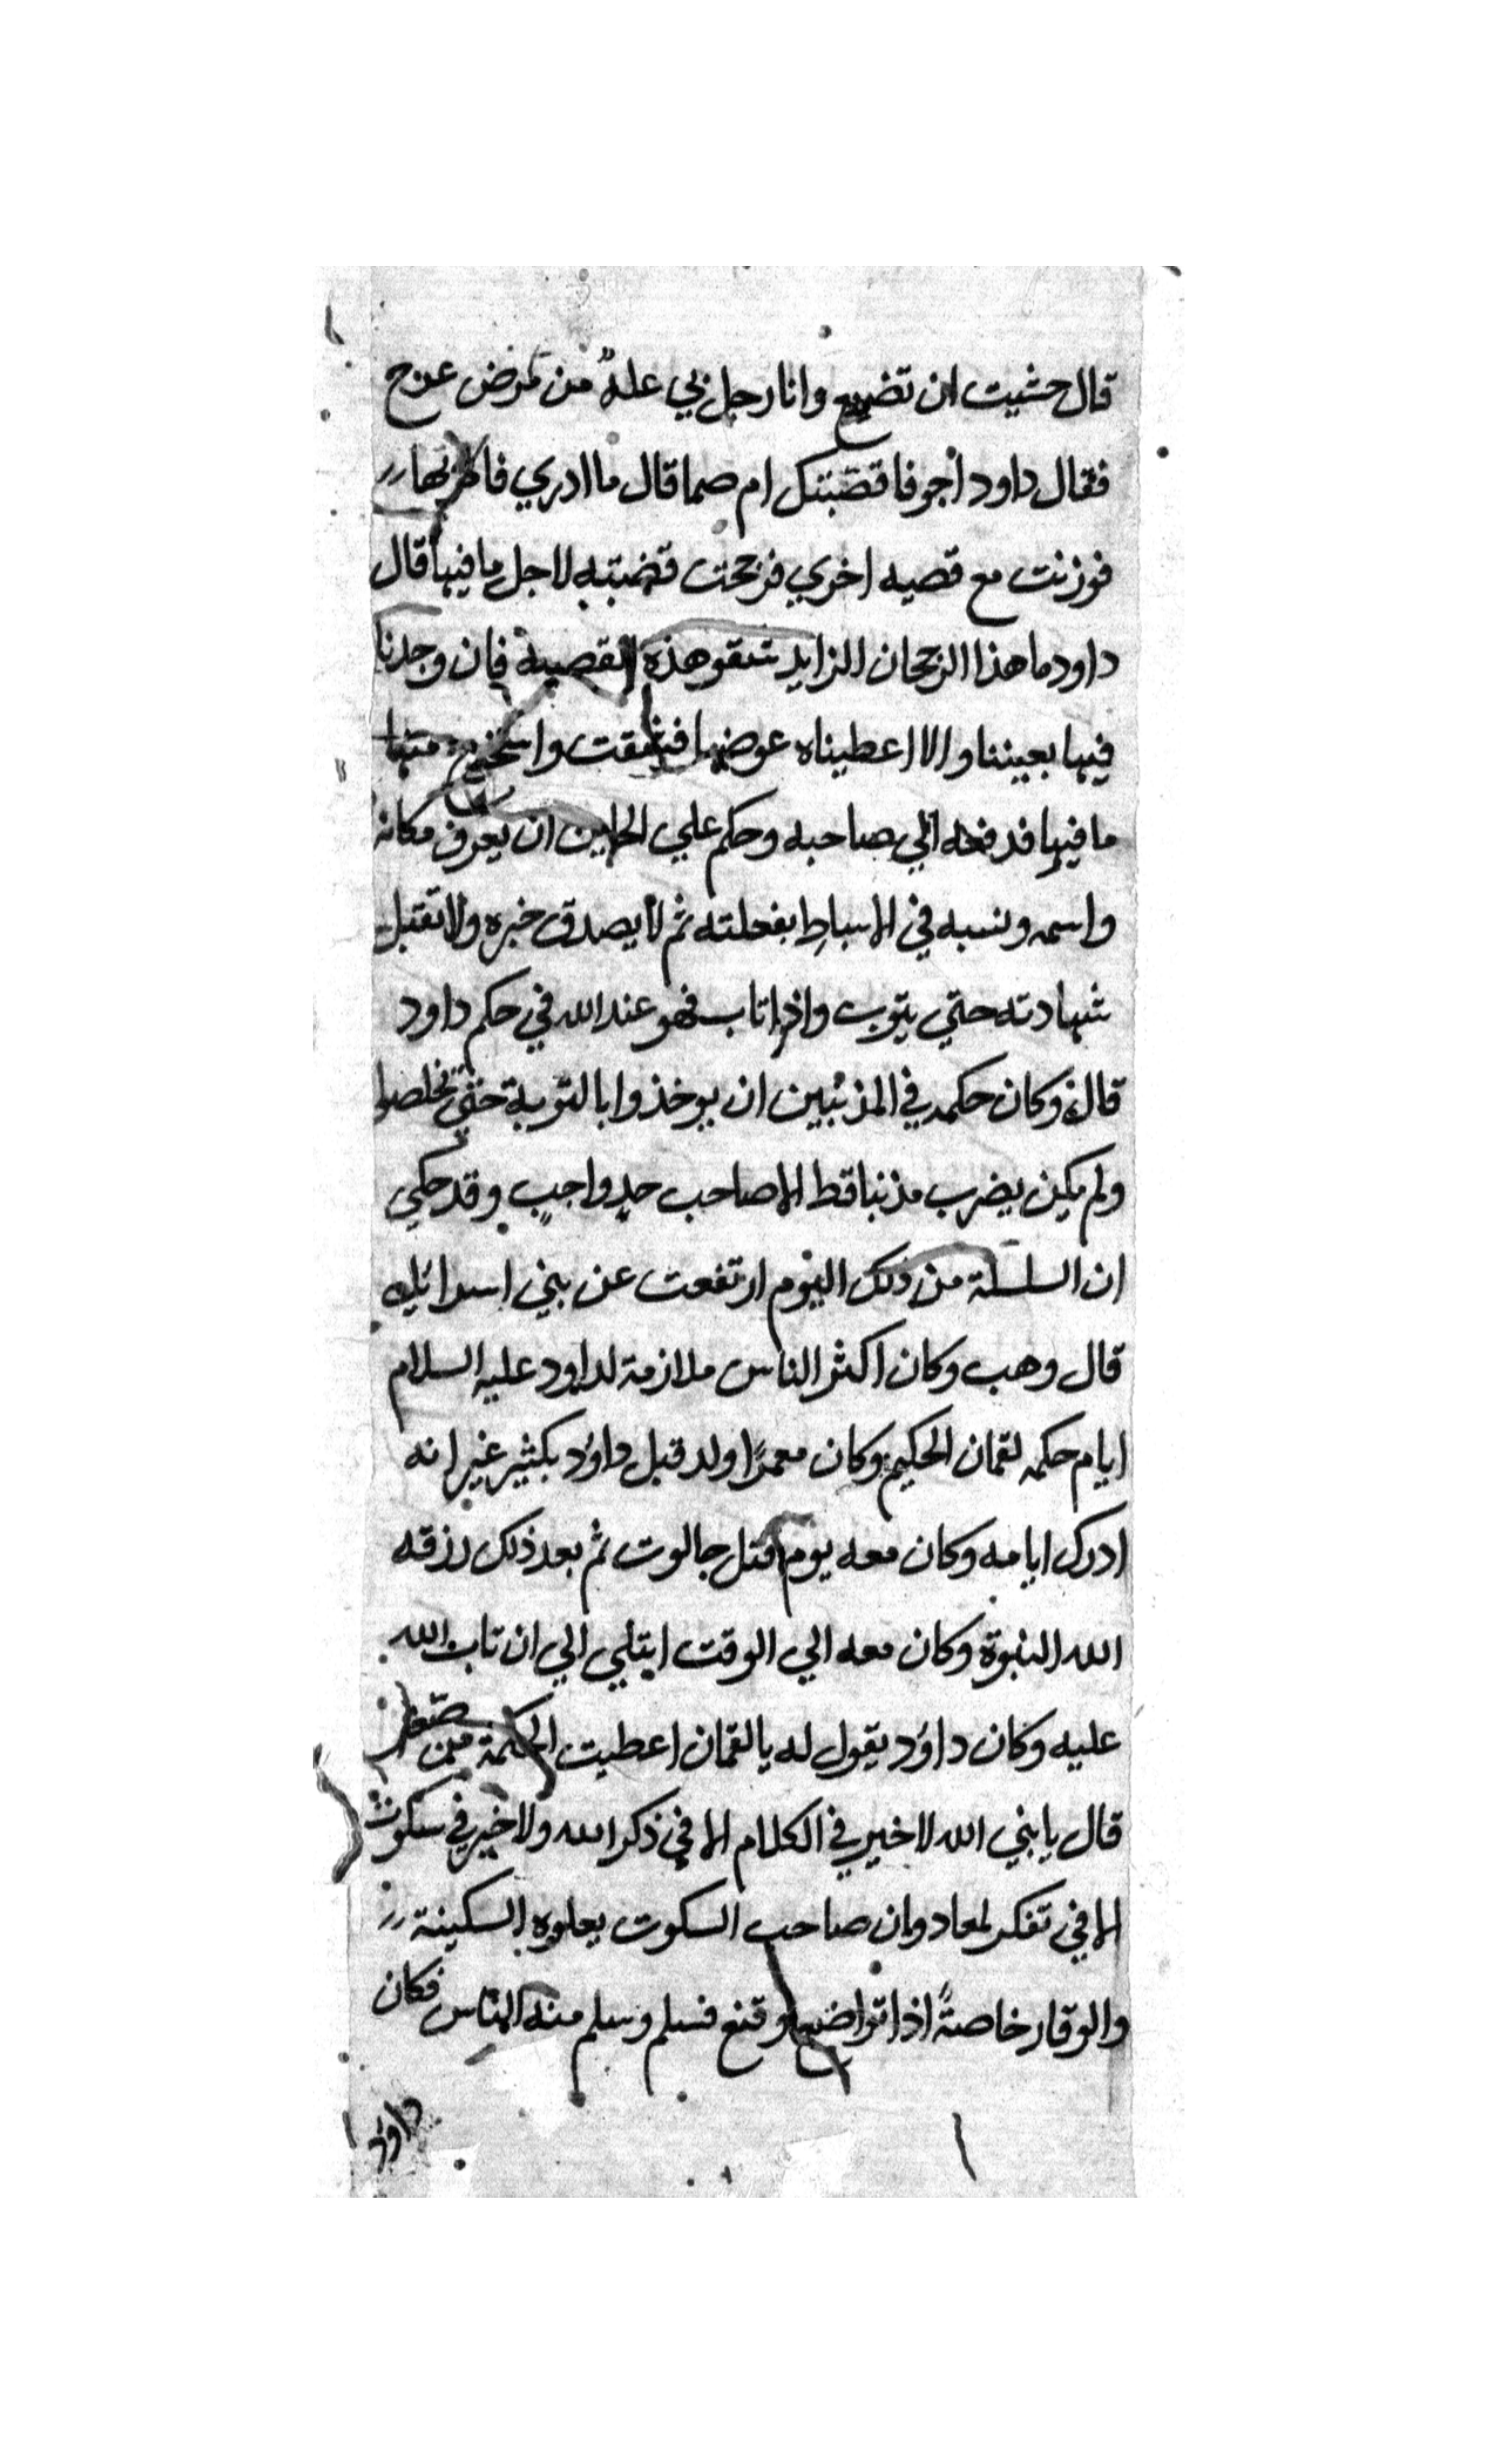 قال خشيت ان تضيع وانا رجل بي علة من مرض عرج
فقال داود اجوفا قصبتك ام صما قال ما ادري فامر بها
فوزنت مع قصبه اخري فرجحت قصبته لاجل ما فيها قال
داود ما هذا الرجحان الزايد شقو هذه القصبة فان وجدنا
فيها بعيننا والا اعطيناه عوضها فشقت واستخرج منها
ما فيها فدفعه الي صاحبه وحكم علي الخاين ان يعرف مكانه
واسمه ونسبه في الاسباط بفعلته ثم لا يصدق خبره ولا تقبل
شهادته حتي يتوب واذا تاب فهو عند الله في حكم داود
قال وكان حكمه في المذنبين ان يوخذوا بالتوبة حتي يخلصوا
ولم يكن يضرب مذنبا قط الا صاحب حدٍ واجبٍ وقد حكي
ان السلسلة من ذلك اليوم ارتفعت عن بني اسرائيل
قال وهب وكان اكثر الناس ملازمة لداود عليه السلام
ايام حكمه لقمان الحكيم وكان معمرًا ولد قبل داؤد بكثير غير انه
ادرك ايامه وكان معه يوم قتل جالوت ثم بعد ذلك رزقه
الله النبوة وكان معه الي الوقت ابتلي الي ان تاب الله
عليه وكان داؤد يقول له يا لقمان اعطيت الحكمة من صغر
قال يا نبي الله لا خير في الكلام الا في ذكر الله ولا خير في سكوت
الا في تفكر لمعاد وان صاحب السكوت يعلوه السكينة
والوقار خاصةً اذا تواضع وقنع فسلم وسلم منه الناس فكان
داؤد